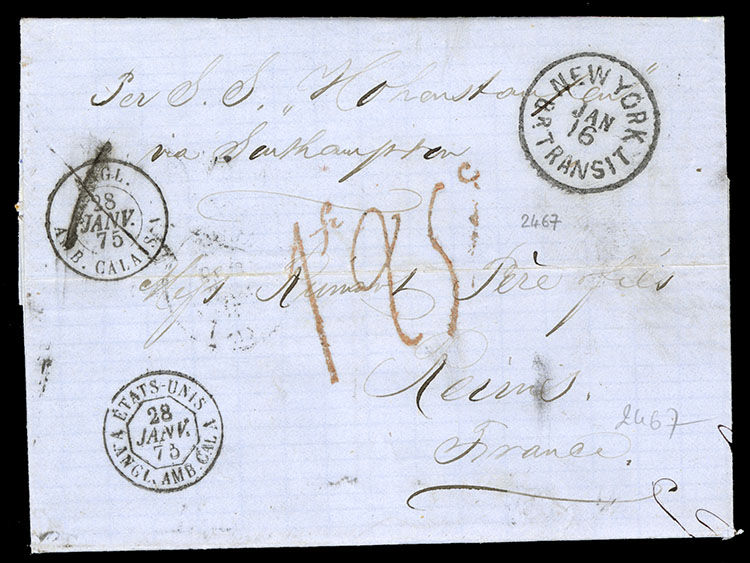 Per S. S. "Hohenstaufen"
via Southampton
NEW YORK
JAN
16
BR TRANSIT
ANGL.
28
JANV.
75
AMB. CALAIS A
2467
1 fr 85 c
Père & fils
Reims.
France.
2467
ÉTATS-UNIS
28
JANV.
75
V. ANGL. AMB. CAL. A